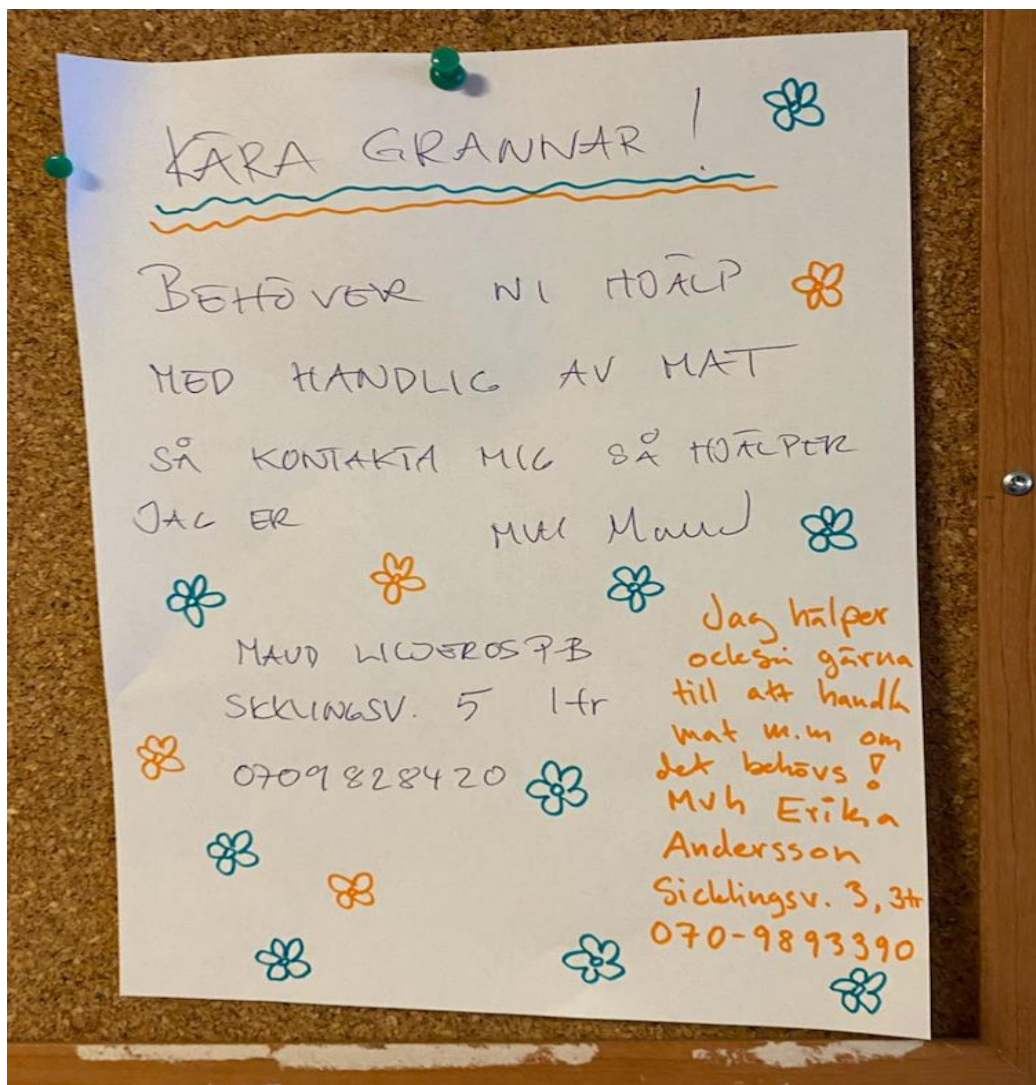 KÄRA GRANNAR!
BEHÖVER NI HJÄLP
MED HANDLIG AV MAT
SÅ KONTAKTA MIG SÅ HJÄLPER
JAG ER
MVH Maud
MAUD
5 1tr
0709828420
Jag hälper
också gärna
till att handla
mat m.m om
det behövs!
Mvh Erika
Andersson
Sicklingsv. 3, 3tr
070-9893390